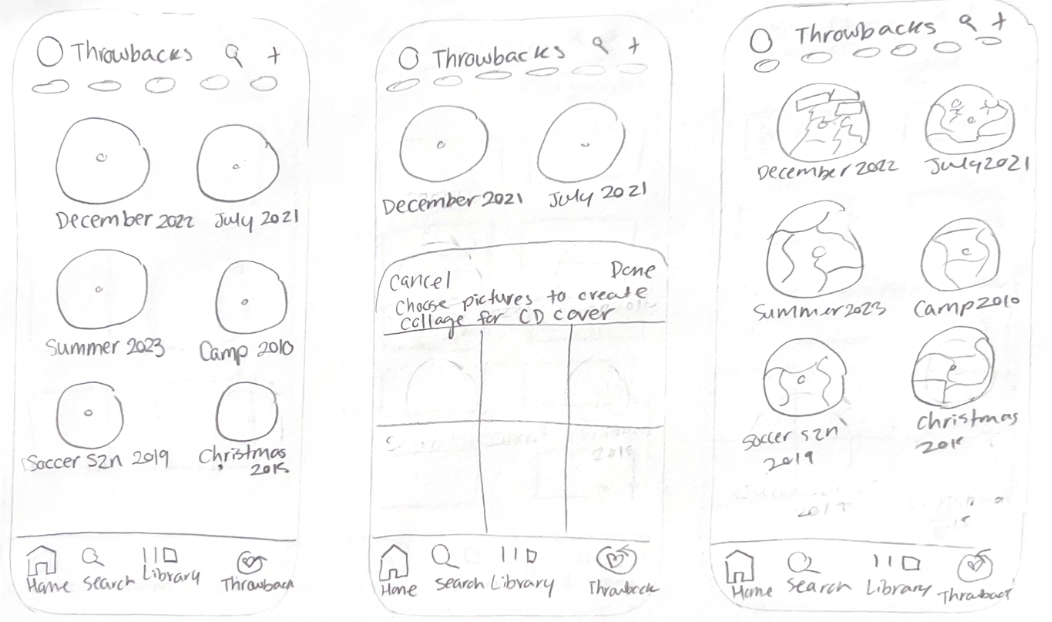 Throwbacks
December 2022 July 2021
Summer 2023 Camp 2010
Soccer szn 2019 Christmas
2015
Home Search Library Throwback
Throwbacks
December 2021 July 2021
Cancel Done
Choose pictures to create
collage for CD cover
Home Search Library Throwback
Throwbacks
December 2022 July 2021
Summer 2023 Camp 2010
Soccer szn Christmas
2019
Home Search Library Throwback